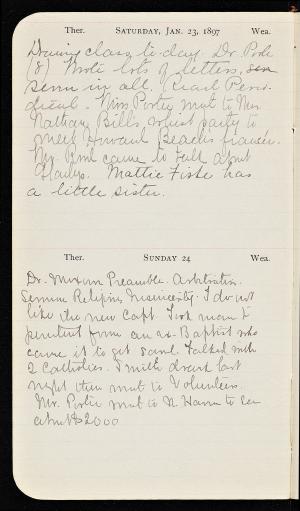 Ther. SATURDAY, JAN. 23, 1897 Wea.
Drawing class to-day. Dr. Pole
(8) Wrote lots of letters,
seven in all. Read Peri-
dical. Miss Porter went to Mrs.
Nathan Bill's whist party to
meet Howard Beach's fiancée.
Mr. came to talk about
Gladys. Mattie Fiske has
a little sister.
Ther. SUNDAY 24 Wea.
Dr. Moxom Preamble. Arbitration.
Sermon Religious Insincerity. I do not
like the new Capt. Took man &
penitent form an ex-Baptist who
came it to get saved. Talked with
2 Catholics. Smith drunk last
night then went to Volunteers.
Mr. Porter went to N. Haven to see
about $2000